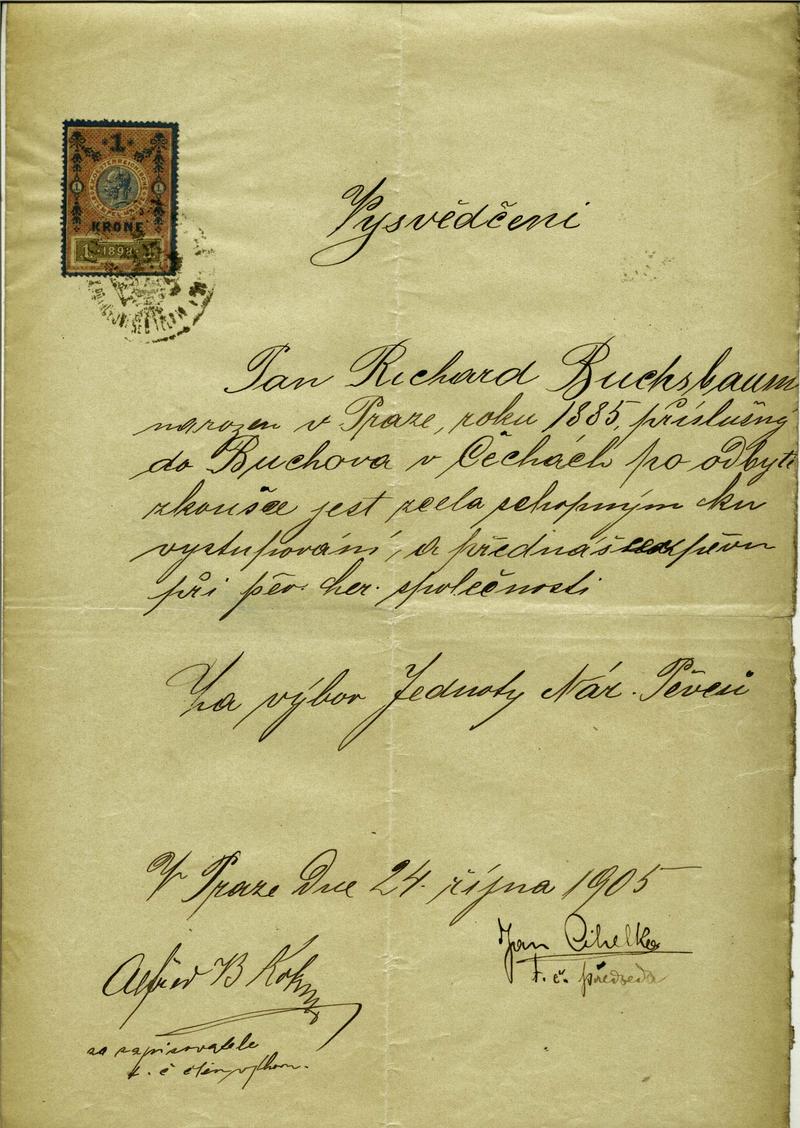 1
1 1
KRONE
1 1898 1
Vysvědčeni
Pan Richard Buchsbaum
narozen v Praze, roku 1885, příslušný
do Buchova v Čechách po odbyté
zkoušce jest zcela schopným ku
vystupování, a přednáš pěvn
při pěv. her. společnosti
Za výbor Jednoty Nár. Pěvců
V Praze Dne 24. října 1905
Jan Cihelka
t. č. předseda
Alfred B
za zapisovatele
t. č člen výbor.